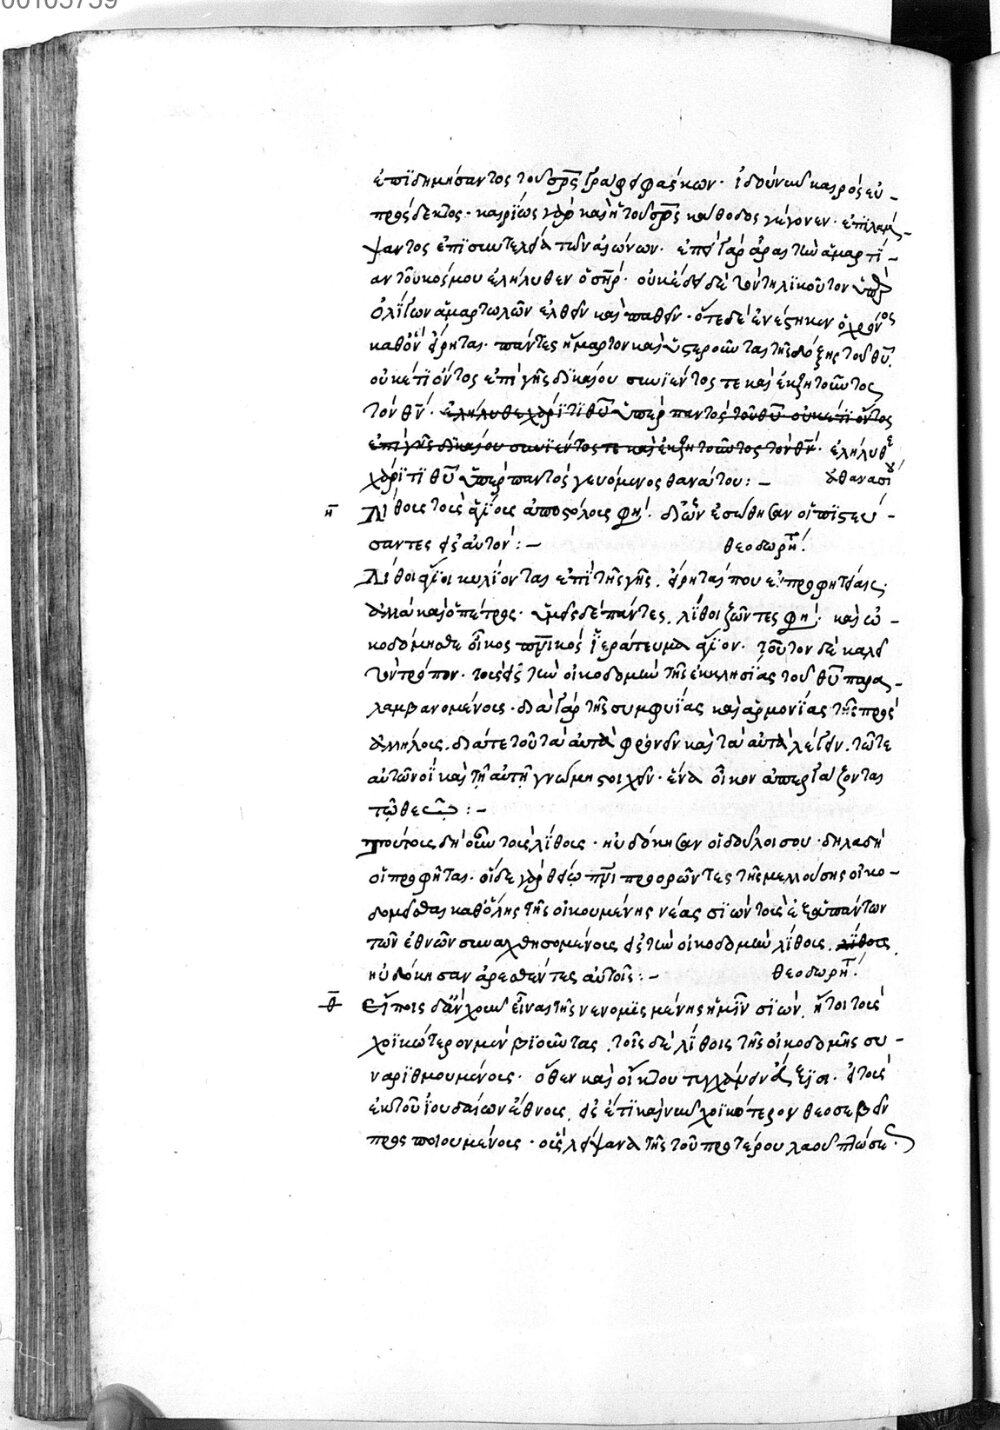 00103759
ἐπιδημήσαντος τοῦ σρ̅ς γράφει φάσκων· ἰδοὺ νῦν καιρὸς εὐ-
πρόσδεκτος· καιρίως γὰρ καὶ ἡ τοῦ σρ̅ς κάθοδος γέγονεν· ἐπιλάμ-
ψαντος ἐπὶ συντελείᾳ τῶν αἰώνων. ἐπεὶ γὰρ ἆραι τὴν ἁμαρτί-
αν τοῦ κόσμου ἐλήλυθεν ὁ σηρ̅· οὐκ ἔδει δὲ τὸν τηλικοῦτον ὑπὲρ
ὀλίγων ἁμαρτωλῶν ἐλθεῖν καὶ παθεῖν· ὅτε δὲ ἐνέστηκεν ὁ χρόνος
καθ' ὃν εἴρηται· πάντες ἥμαρτον καὶ ὑστεροῦνται τῆς δόξης τοῦ θυ̅.
οὐκέτι ὄντος ἐπὶ γῆς δικαίου συνιέντος τε καὶ ἐκζητοῦντος
τὸν θν̅· ἐλήλυθε χάριτι θυ̅ ὑπὲρ παντὸς τοῦ θυ̅ οὐκέτι ὄντος
ἐπὶ γῆς δικαίου συνιέντος τε καὶ ἐκζητοῦντος τὸν θν̅· ἐλήλυθε
χάριτι θυ̅ ὑπὲρ παντὸς γευόμενος θανάτου:- ἀθανασί
η̅ Λίθοις τοῖς ἁγίοις ἀποστόλοις φή· δι' ὧν ἐσώθησαν οἱ πιστεύ-
σαντες εἰς αὐτόν:- θεοδωρήτ
Λίθοι ἅγιοι κυλίονται ἐπὶ τῆς γῆς. εἴρηταί που ἐν προφητείαις·
ἀλλὰ καὶ ὁ πέτρος· ὑμεῖς δὲ πάντες, λίθοι ζῶντες φή· καὶ ᾠ-
κοδόμησθε οἶκος πνικὸς ἱεράτευμα ἅγιον. τοῦτον δὲ καλεῖ
τὸν τρόπον· τοὺς εἰς τὴν οἰκοδομὴν τῆς ἐκκλησίας τοῦ θυ̅ παρα-
λαμβανομένους· διὰ γὰρ τῆς συμφυίας καὶ ἁρμονίας τῆς πρὸς
ἀλλήλους. διά τε τοῦ τὰ αὐτὰ φρονεῖν καὶ τὰ αὐτὰ λέγειν. τῶ τε
αὐτῶ νοῒ καὶ τῇ αὐτῇ γνώμῃ στοιχεῖν· ἕνα οἶκον ἀπεργάζονται
τῷ θεῷ:-
Τούτοις δὴ οὖν τοῖς λίθοις· ηὐδόκησαν οἱ δοῦλοί σου· δηλαδὴ
οἱ προφῆται. οἵδε γὰρ θείῳ πνι προορῶντες τῆς μελλούσης οἰκο-
δομεῖσθαι καθ' ὅλης τῆς οἰκουμένης νέας σιὼν τοῖς ἐξ ἁπάντων
τῶν ἐθνῶν συναχθησομένοις εἰς τὴν οἰκοδομὴν λίθοις. λίθοις
ηὐδόκησαν ἀρεσθέντες αὐτοῖς:- θεοδωρήτ
θ̅ Εἴποις δ' ἂν χοῦν εἶναι τῆς νενομισμένης ἡμῖν σιών. ἤτοι τοὺς
χοϊκώτερον μὲν βιοῦντας. τοῖς δὲ λίθοις τῆς οἰκοδομῆς συ-
ναριθμουμένους· ὅθεν καὶ οἴκτου τυγχάνειν ἄξιοι· ἢ τοὺς
ἐκ τοῦ ἰουδαίων ἔθνους. εἰς ἔτι καὶ νῦν χοϊκώτερον θεοσεβεῖν
προσποιουμένους· οἷς λείψανα τῆς τοῦ προτέρου λαοῦ πτώσε